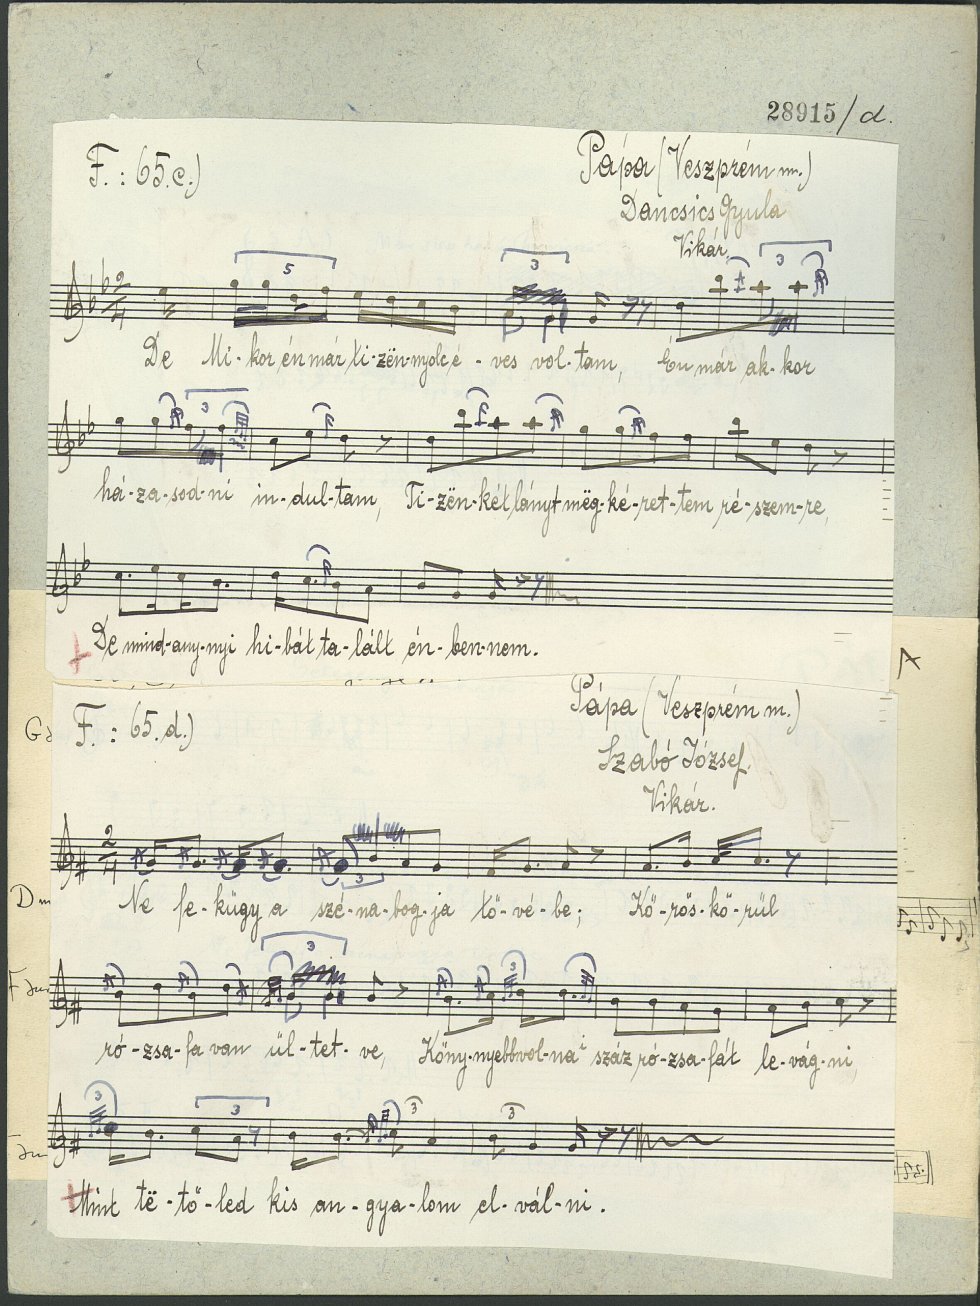 28915/d.
F.: 65.c.)
Pápa (Veszprém m.)
Dancsics Gyula
Vikár.
5
3
3
2/4
De Mi-kor én már ti-zën-nyolc é-ves vol-tam, Én már ak-kor
3
há-za-sod-ni in-dul-tam, Ti-zën-két lányt mëg-ké-ret-tem ré-szem-re,
De mind-any-nyi hi-bát ta-lált én-ben-nem.
A
F.: 65.d.)
Pápa (Veszprém m.)
Szabó József.
Vikár.
2/4
3
Ne fe-kügy a szé-na-bog-ja tö-vé-be; Kö-rös-kö-rül
3
3
ró-zsa-fa van ül-tet-ve, Köny-nyebb vol-na száz ró-zsa-fát le-vág-ni,
3
3
3
3
Mint të-tő-led kis an-gya-lom el-vál-ni.